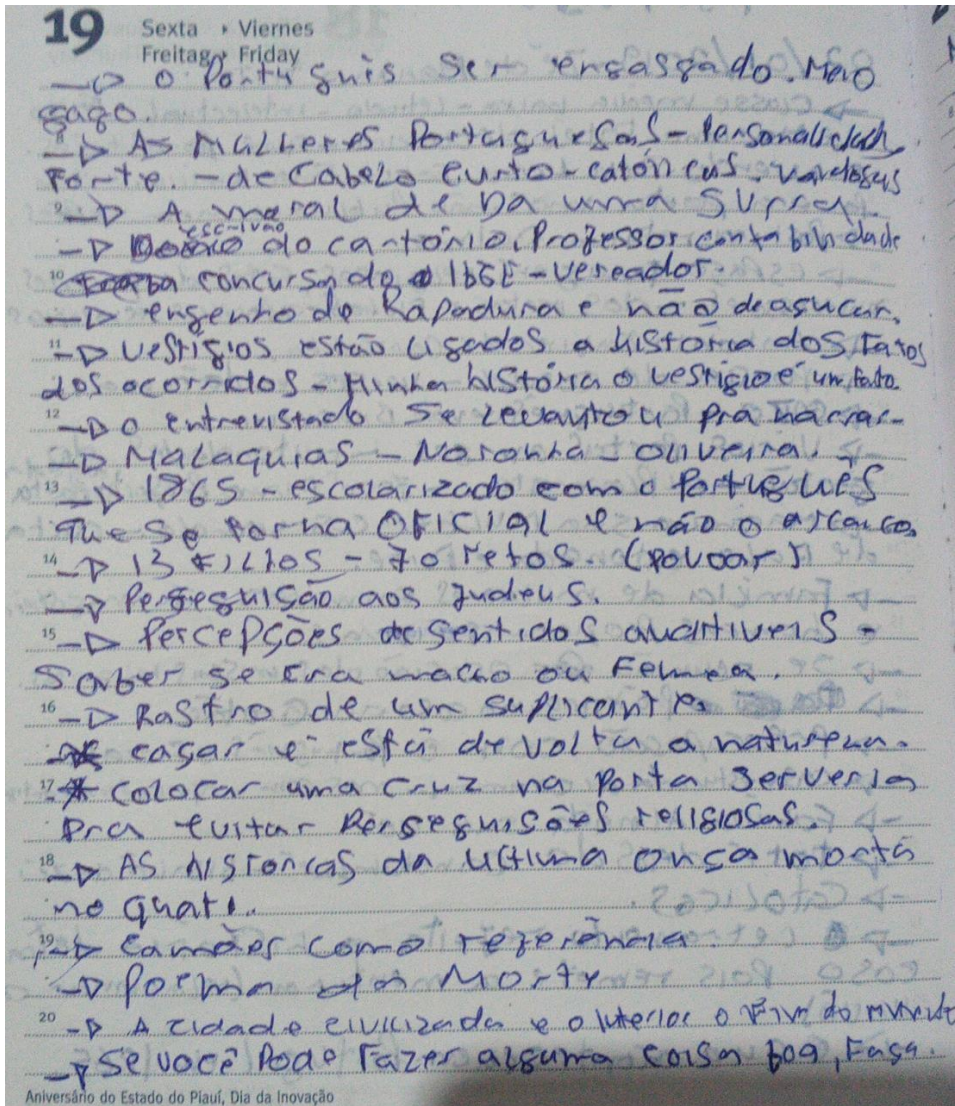 19 Sexta • Viernes
Freitag • Friday
→ O Portuguis ser engasgado. Meio
gago.
8 → As Mulheres Portuguesas - Personalidade
Forte. - de Cabelo curto - católicas. vaidosas
9 → A moral de Da uma surra.
→ escrivão do cartório. Professor contabilidade
10 concursado IBGE - Vereador.
→ engenho de Rapadura e não de açucar.
11 → Vestígios estão ligados a história dos Fatos
dos ocorridos - Minha história o vestígio é um fato.
12 → O entrevistado se levantou pra narrar.
→ Malaquias - Noronha - Oliveira.
13 → 1865 - escolarizado com o Português
que se torna OFICIAL e não o arcaico.
14 → 13 Filhos - 70 netos. (povoar)
→ Perseguição aos Judeus.
15 → Percepções de sentidos auditiveis
Saber se era macho ou Femea.
16 → Rastro de um suplicante.
* caçar é está de volta a natureza.
17 * colocar uma cruz na porta serveria
Pra evitar Perseguições religiosas.
18 → As historias da ultima onça morta
no quati.
19 → Camões como referência.
→ Poema da Morte
20 → A cidade civilizada e o interior o Fim do mundo
→ Se você Pode Fazer alguma coisa boa, Faça.
Aniversário do Estado do Piauí, Dia da Inovação